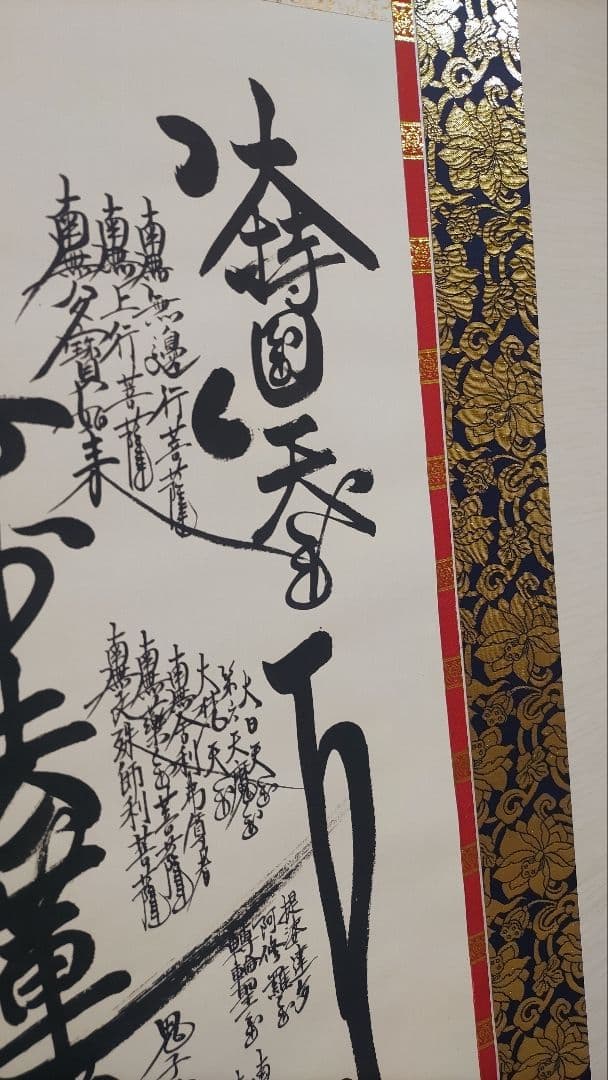 大持国天王
南無無邊行菩薩
南無上行菩薩
南無多寳如来
大日天王
第六天魔王
大梵天王
南無舎利弗尊者
南無薬王菩薩
南無文殊師利菩薩
提婆達多
阿修羅王
轉輪聖王
鬼子
法
蓮